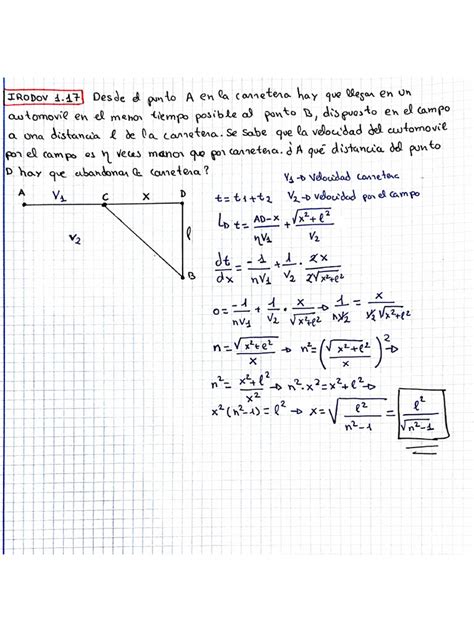 IRODOV 1.17 Desde el punto A en la carretera hay que llegar en un
automovil en el menor tiempo posible al punto B, dispuesto en el campo
a una distancia l de la carretera. Se sabe que la velocidad del automovil
por el campo es η veces menor que por carretera. ¿A qué distancia del punto
D hay que abandonar la carretera?
V₁→ Velocidad carretera
A V₁ C x D
t = t₁ + t₂ V₂→ Velocidad por el campo
V₂ l
B
↳ t = (AD-x)/(ηV₁) + √(x²+l²)/V₂
dt/dx = -1/(ηV₁) + 1/V₂ · 2x/(2√(x²+l²))
0 = -1/(ηV₁) + 1/V₂ · x/√(x²+l²) → 1/(ηV₂) = x/(V₂√(x²+l²))
η = √(x²+l²)/x → η² = (√(x²+l²)/x)² →
η² = (x²+l²)/x² → η²·x² = x²+l² →
x²(η²-1) = l² → x = √(l²/(η²-1)) = l²/√(η²-1)